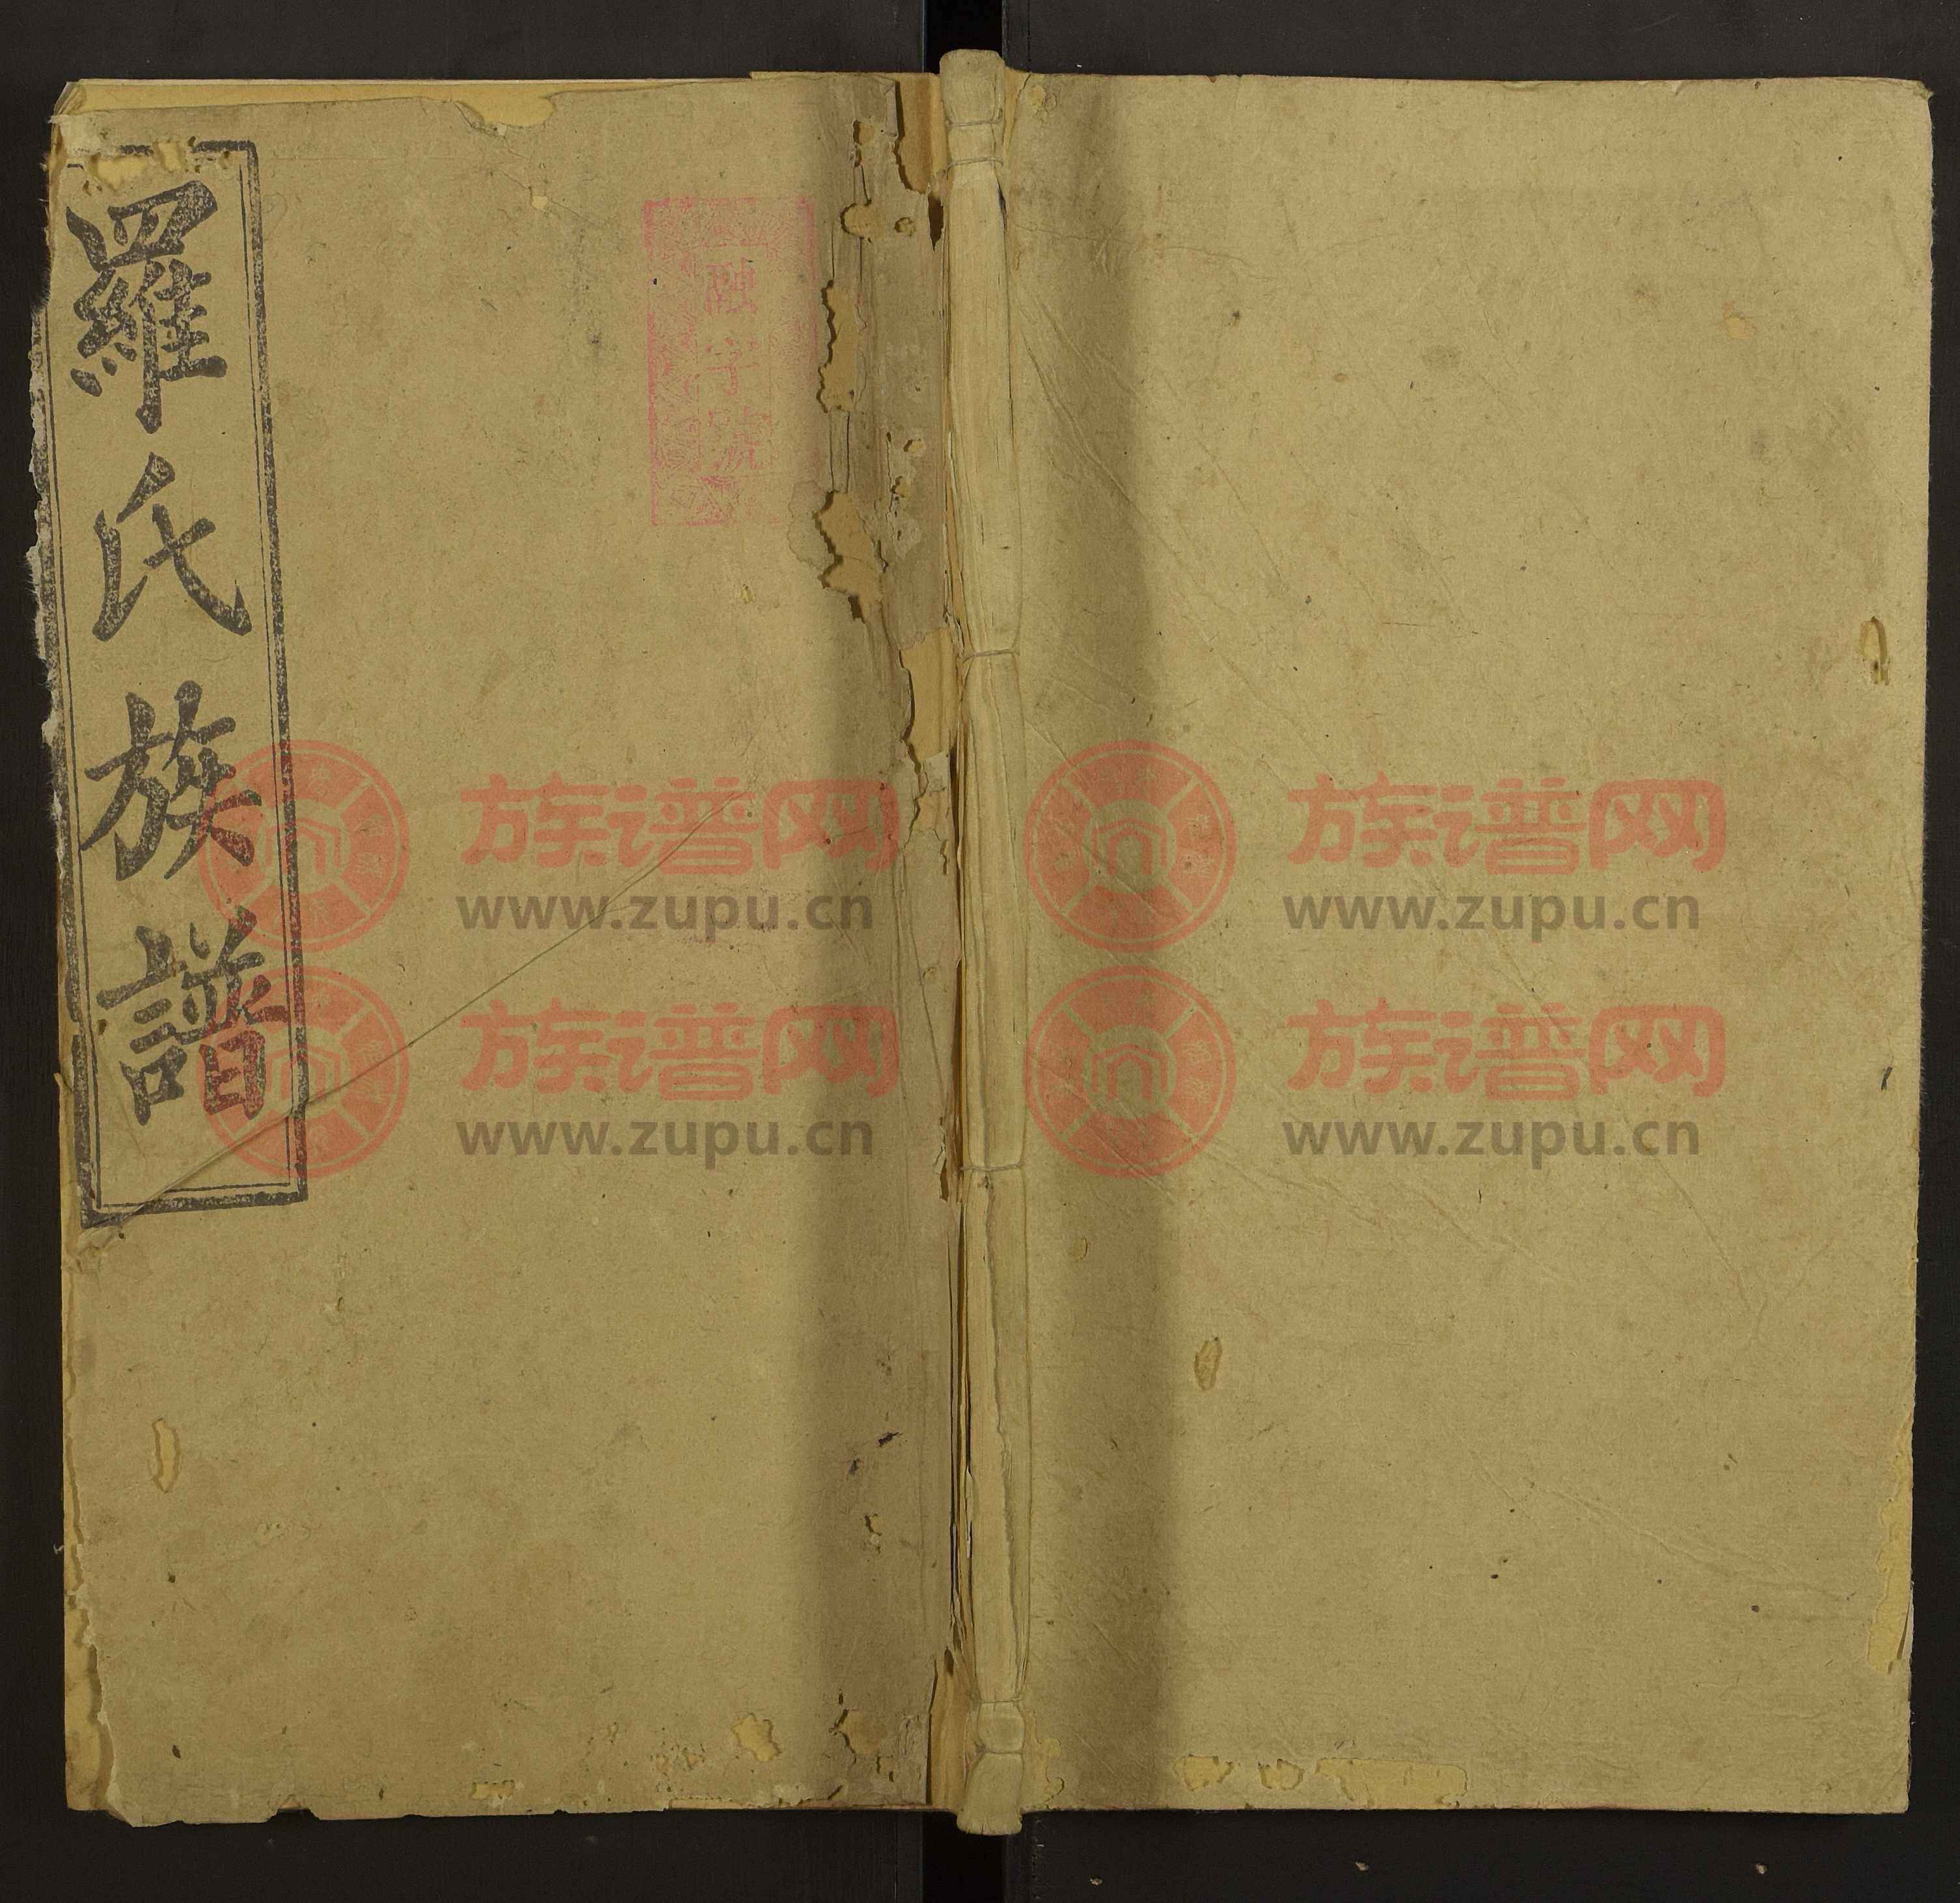 羅氏族譜
字號
族谱网
www.zupu.cn
族谱网
www.zupu.cn
族谱网
www.zupu.cn
族谱网
www.zupu.cn